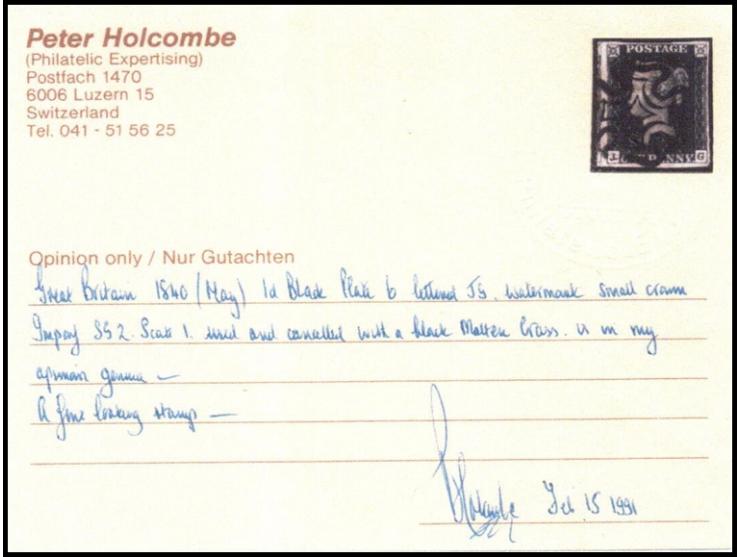 Peter Holcombe
(Philatelic Expertising)
Postfach 1470
6006 Luzern 15
Switzerland
Tel. 041 - 51 56 25
POSTAGE
J G
Opinion only / Nur Gutachten
Great Britain 1840 (May) 1d Black Plate 6 lettered JG. watermark small crown
Imperf SG 2. Scott 1. used and cancelled with a black Maltese Cross. is in my
opinion genuine —
A fine looking stamp —
Holcombe Feb 15 1991